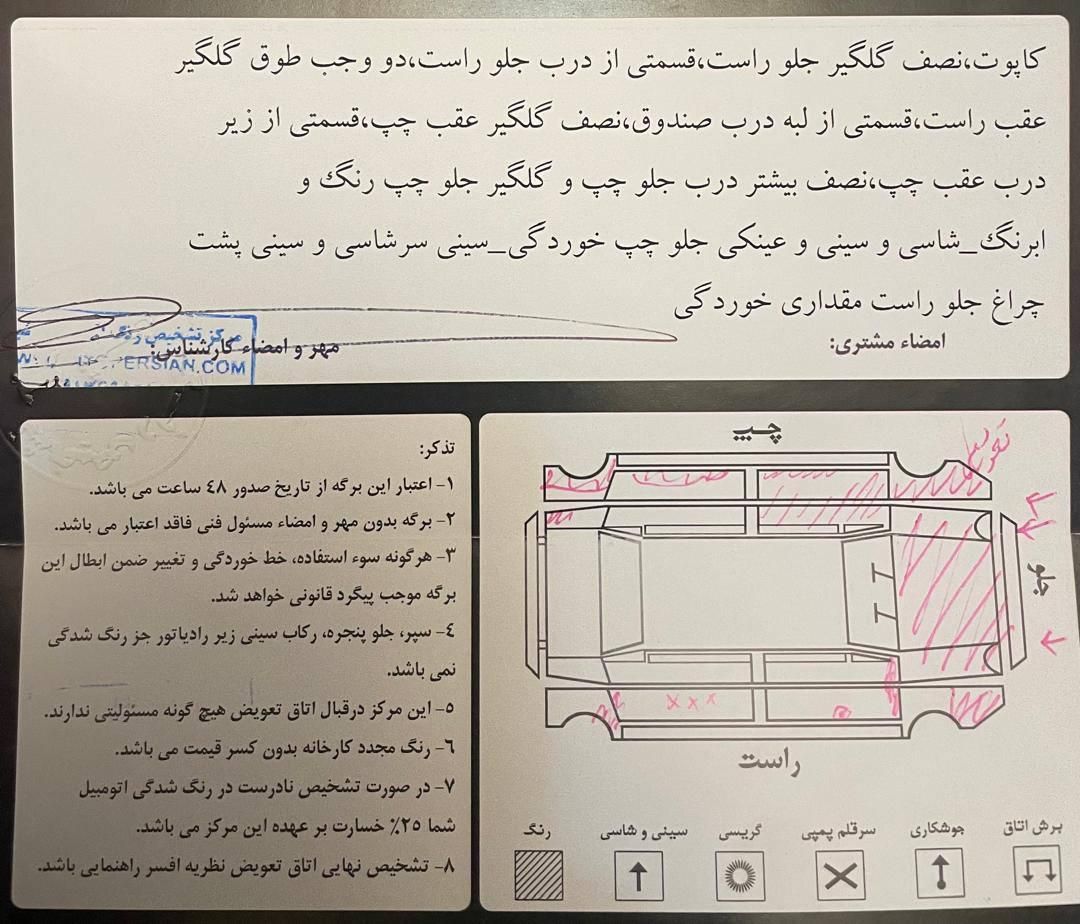 کاپوت،نصف گلگیر جلو راست،قسمتی از درب جلو راست،دو وجب طوق گلگیر
عقب راست،قسمتی از لبه درب صندوق،نصف گلگیر عقب چپ،قسمتی از زیر
درب عقب چپ،نصف بیشتر درب جلو چپ و گلگیر جلو چپ رنگ و
ابرنگ_شاسی و سینی و عینکی جلو چپ خوردگی_سینی سرشاسی و سینی پشت
چراغ جلو راست مقداری خوردگی
امضاء مشتری:
مهر و امضاء کارشناس:
مرکز تشخیص رنگ
PERSIAN.COM
تذکر:
۱- اعتبار این برگه از تاریخ صدور ٤٨ ساعت می باشد.
۲- برگه بدون مهر و امضاء مسئول فنی فاقد اعتبار می باشد.
۳- هرگونه سوء استفاده، خط خوردگی و تغییر ضمن ابطال این
برگه موجب پیگرد قانونی خواهد شد.
٤- سپر، جلو پنجره، رکاب سینی زیر رادیاتور جز رنگ شدگی
نمی باشد.
٥- این مرکز درقبال اتاق تعویض هیچ گونه مسئولیتی ندارند.
٦- رنگ مجدد کارخانه بدون کسر قیمت می باشد.
۷- در صورت تشخیص نادرست در رنگ شدگی اتومبیل
شما ۲۵٪ خسارت بر عهده این مرکز می باشد.
۸- تشخیص نهایی اتاق تعویض نظریه افسر راهنمایی باشد.
چپ
جلو
راست
برش اتاق
جوشکاری
سرقلم پمپی
گریسی
سینی و شاسی
رنگ